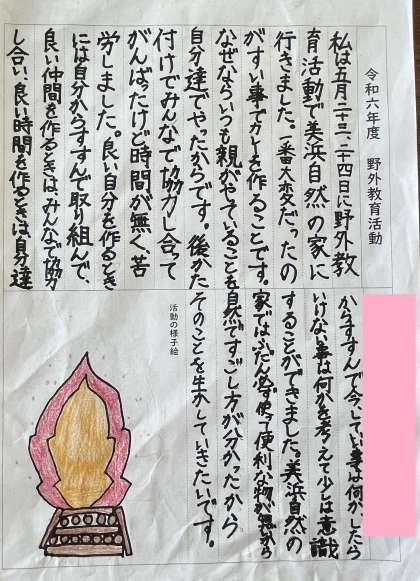 令和六年度　野外教育活動
私は五月二十三、二十四日に野外教
育活動で美浜自然の家に
行きました。一番大変だったの
がすい事でカレーを作ることです。
なぜならいつも親がやていることを
自分達でやったからです。後かた
付けでみんなで協力し合って
がんばったけど時間が無く、苦
労しました。良い自分を作るとき
には自分からすすんで取り組んで、
良い仲間を作るときは、みんなで協力
し合い、良い時間を作るときは、自分達
からすすんで今してい事は何かしたら
いけない事は何かを考えて少しは意識
することができました。美浜自然の
家ではふだん必ず使って便利な物が無いから
自然ですごし方が分かったから
そのことを生かしていきたいです。
活動の様子絵